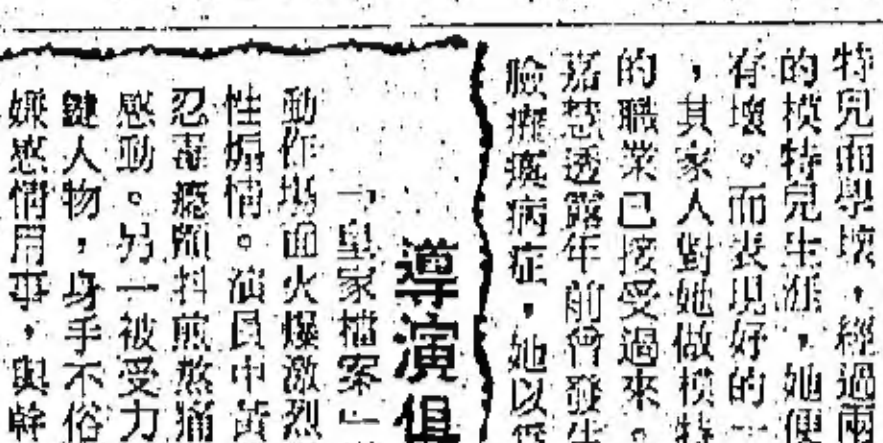 特兒而學壞，經過兩
的模特兒生涯，她便
有壞。而表現好的一
，其家人對她做模特
的職業已接受過來。
嘉慧透露年前曾發生
臉癱瘓病症，她以爲
導演俱
「皇家檔案」
動作場面火爆激烈
性煽情。演員中黃
忍毒癮顫抖煎熬痛
感動。另一被受力
鍵人物，身手不俗
嫌感情用事，與幹